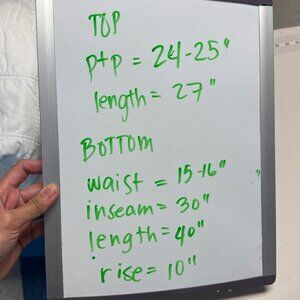 TOP
ptp = 24-25"
length = 27"
BOTTOM
waist = 15-16"
inseam = 30"
length = 40"
rise = 10"